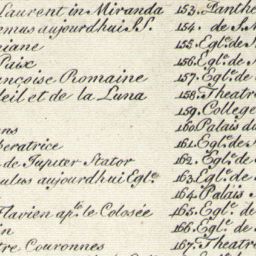 Laurent in Miranda
emus aujourdhui SS.
iane
Paix
nçoise Romaine
leil et de la Luna
ens
beratrice
de Jupiter Stator
ulus aujourdhui Egl.e
Flavien ap.le le Colosée
in
tre Couronnes
153. Panthe
154. de S.M
155. Egl.e de S
156. Egl.e de
157. Egl.e de
158. Theatre
159. College
160. Palais du
161. Egl.e de S
162. Egl.e de
163. Egl.e de
164. Palais
165. Egl.e de
166. Egl.e de S
167. Theatre